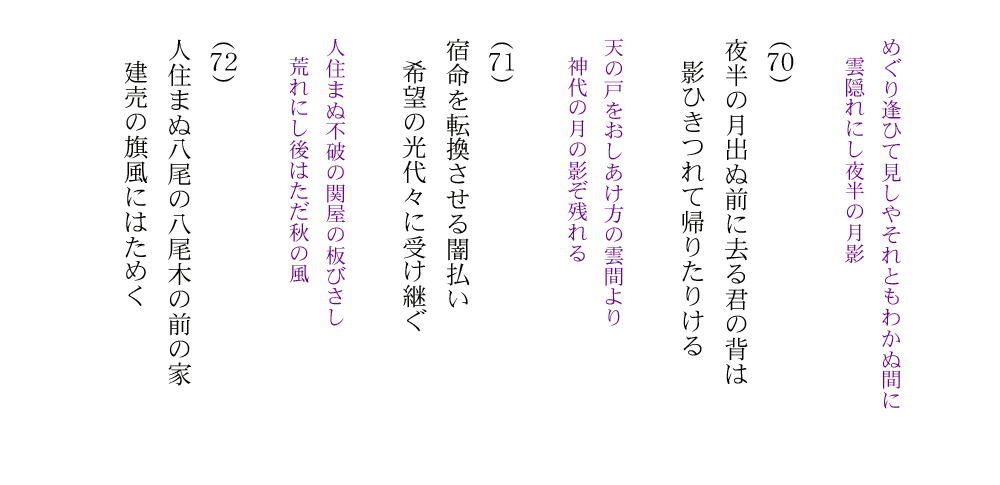 めぐり逢ひて見しやそれともわかぬ間に
雲隠れにし夜半の月影
(70)
夜半の月出ぬ前に去る君の背は
影ひきつれて帰りたりける
天の戸をおしあけ方の雲間より
神代の月の影ぞ残れる
(71)
宿命を転換させる闇払い
希望の光代々に受け継ぐ
人住まぬ不破の関屋の板びさし
荒れにし後はただ秋の風
(72)
人住まぬ八尾の八尾木の前の家
建売の旗風にはためく